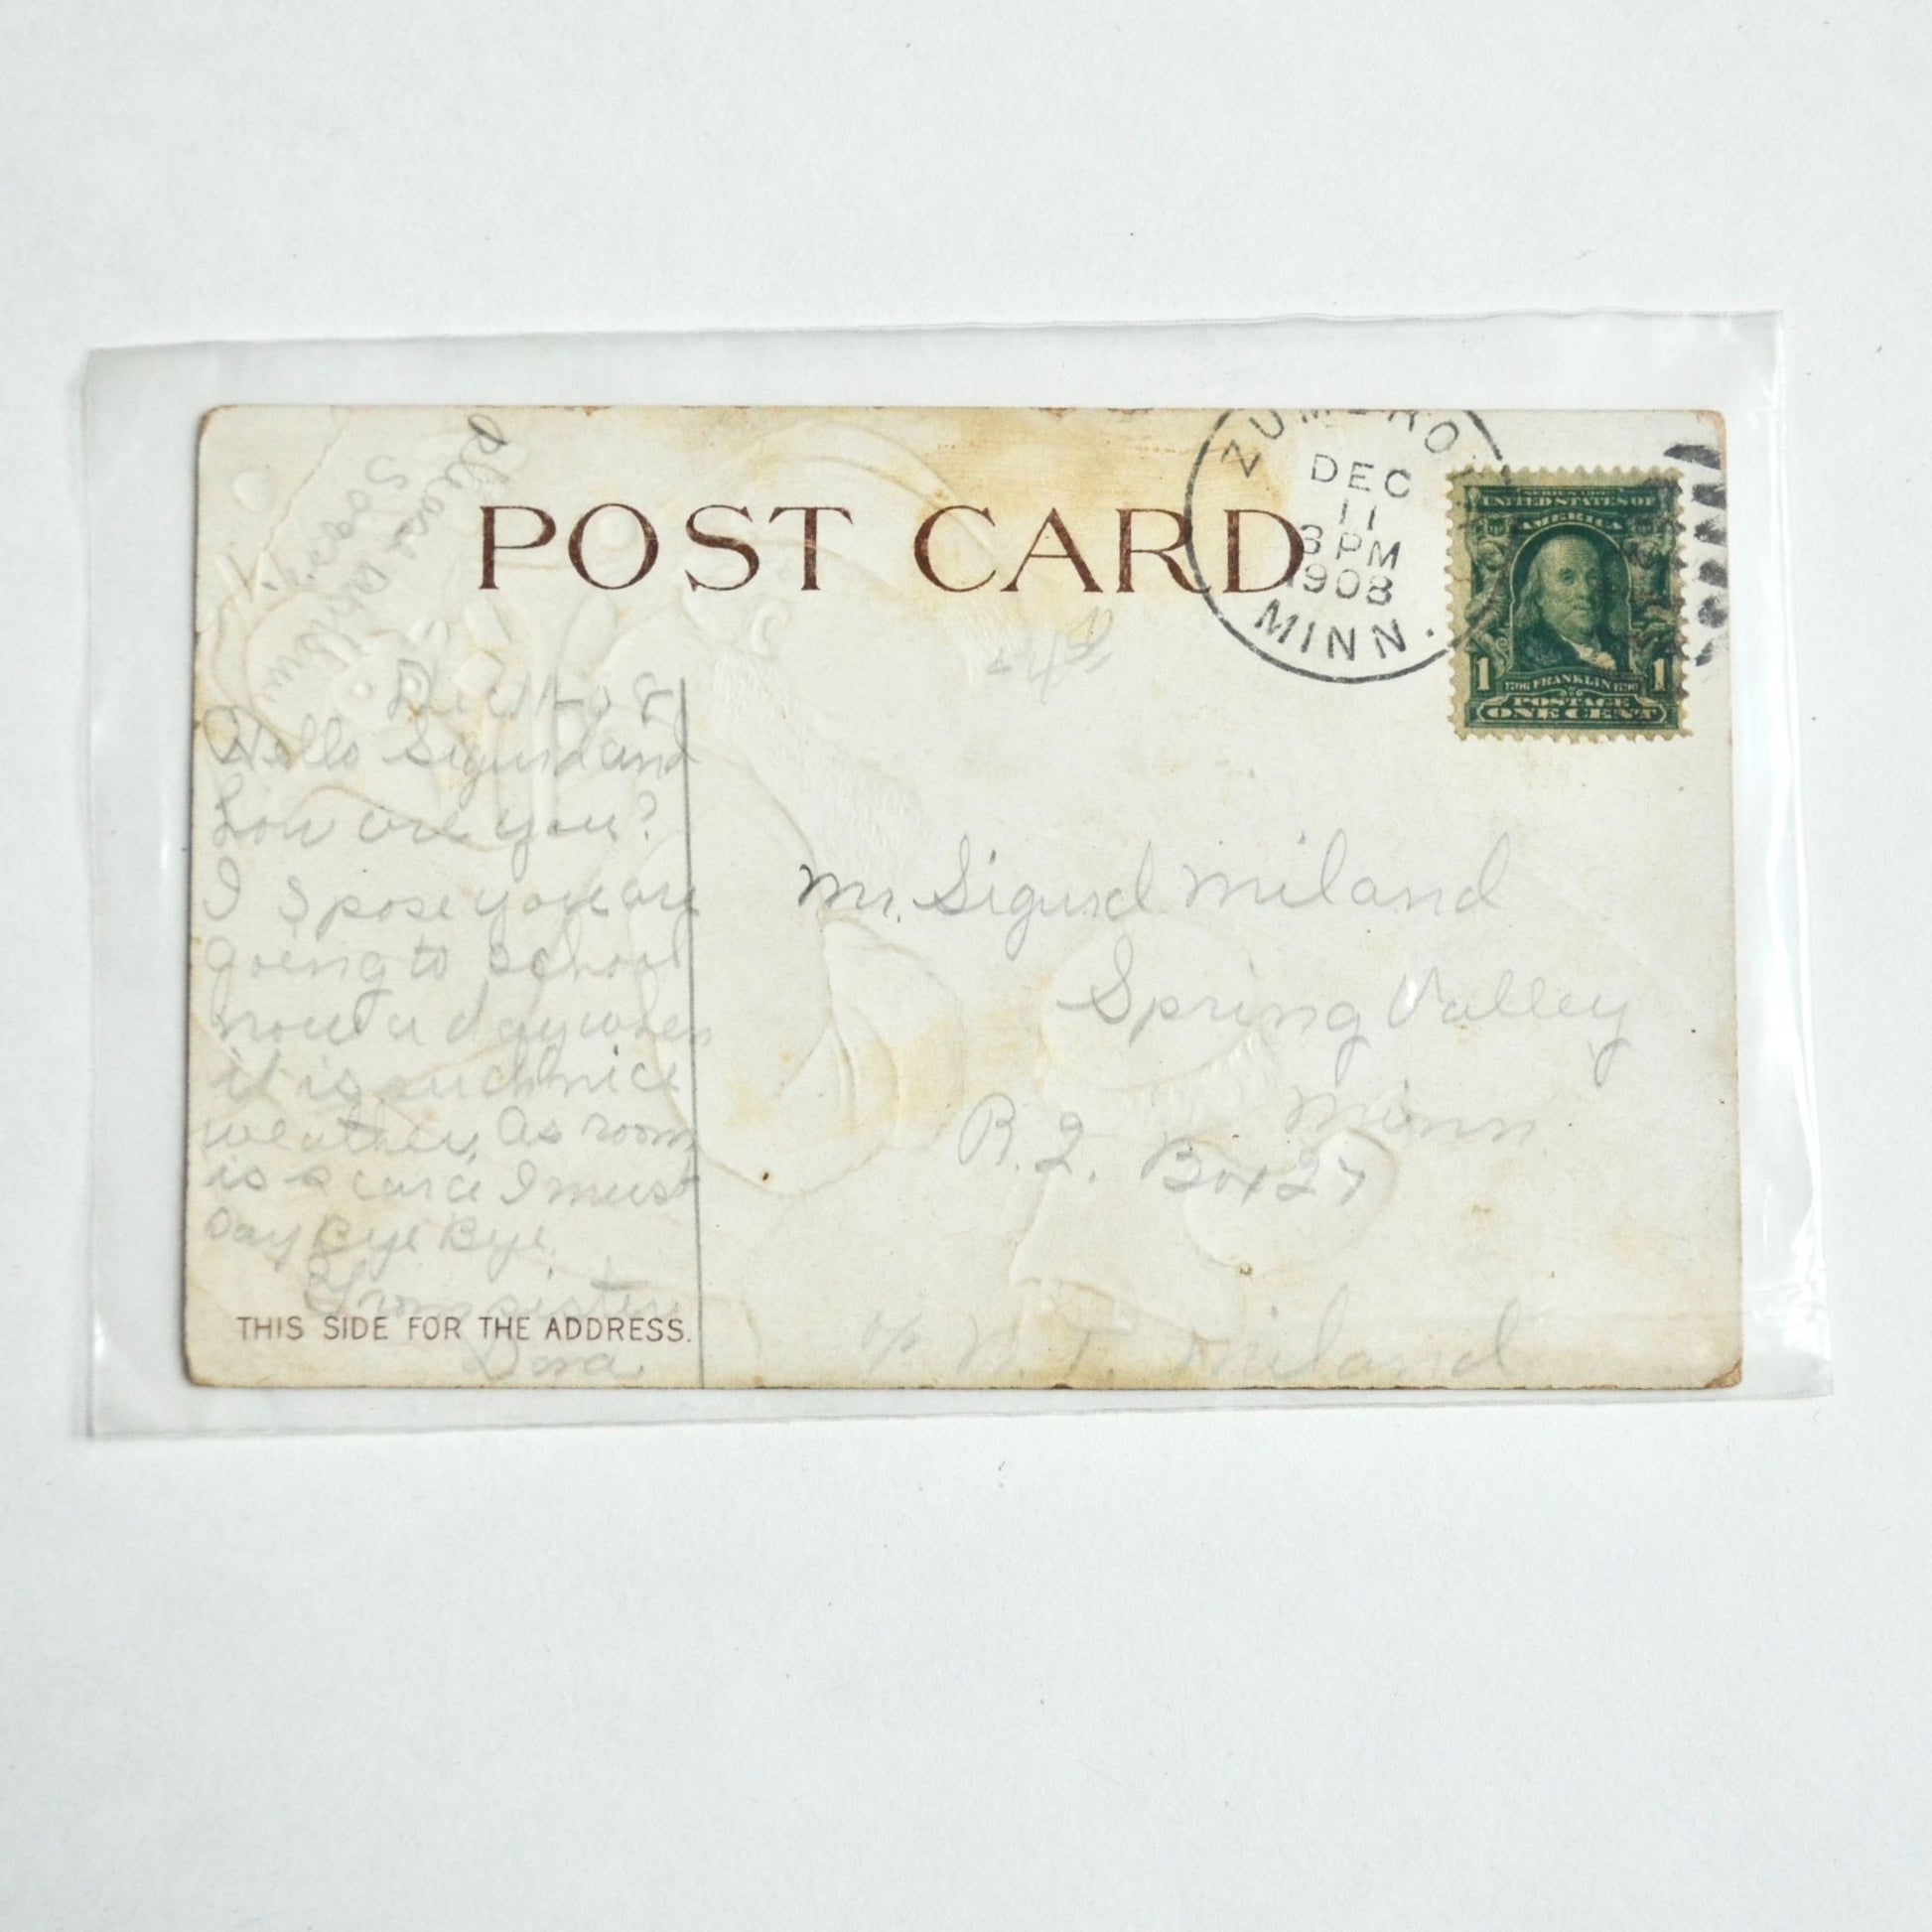 Please Answer
Soon.
POST CARD
DEC
11
3 PM
1908
MINN.
SERIES 1902
UNITED STATES OF
AMERICA
1 1706 FRANKLIN 1790 1
POSTAGE
ONE CENT
Dec 11-08
Hello Sigurd and
how are you?
I Spose you are
going to school
now a day when
it is such nice
weather. As room
is scarce I must
Say Bye Bye.
From sister
Dora.
THIS SIDE FOR THE ADDRESS.
Mr. Sigurd Miland
Spring Valley
Minn
R. 2. Box 27
Miland